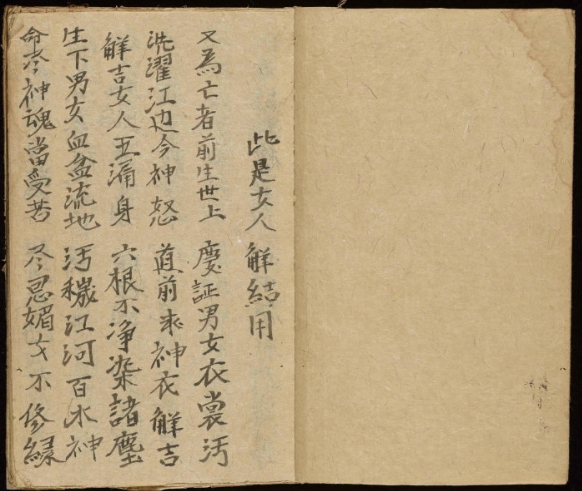 此是女人解結用
又為亡者前生世上 慶証男女衣裳汚
洗濯江边令神怒 直前來神衣解吉
觧吉女人五漏身 六根不净染諸塵
生下男女血盆流地 汚穢江河百水神
命尽神魂當受苦 尽思媚女不修緣